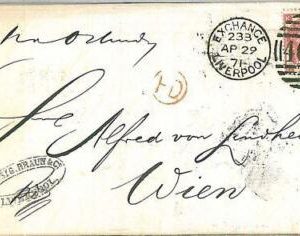 via Ostende
EXCHANGE
233
AP 29
71
LIVERPOOL
PD
Alfred von
Wien
SIG. BRAUN & Co
LIVERPOOL